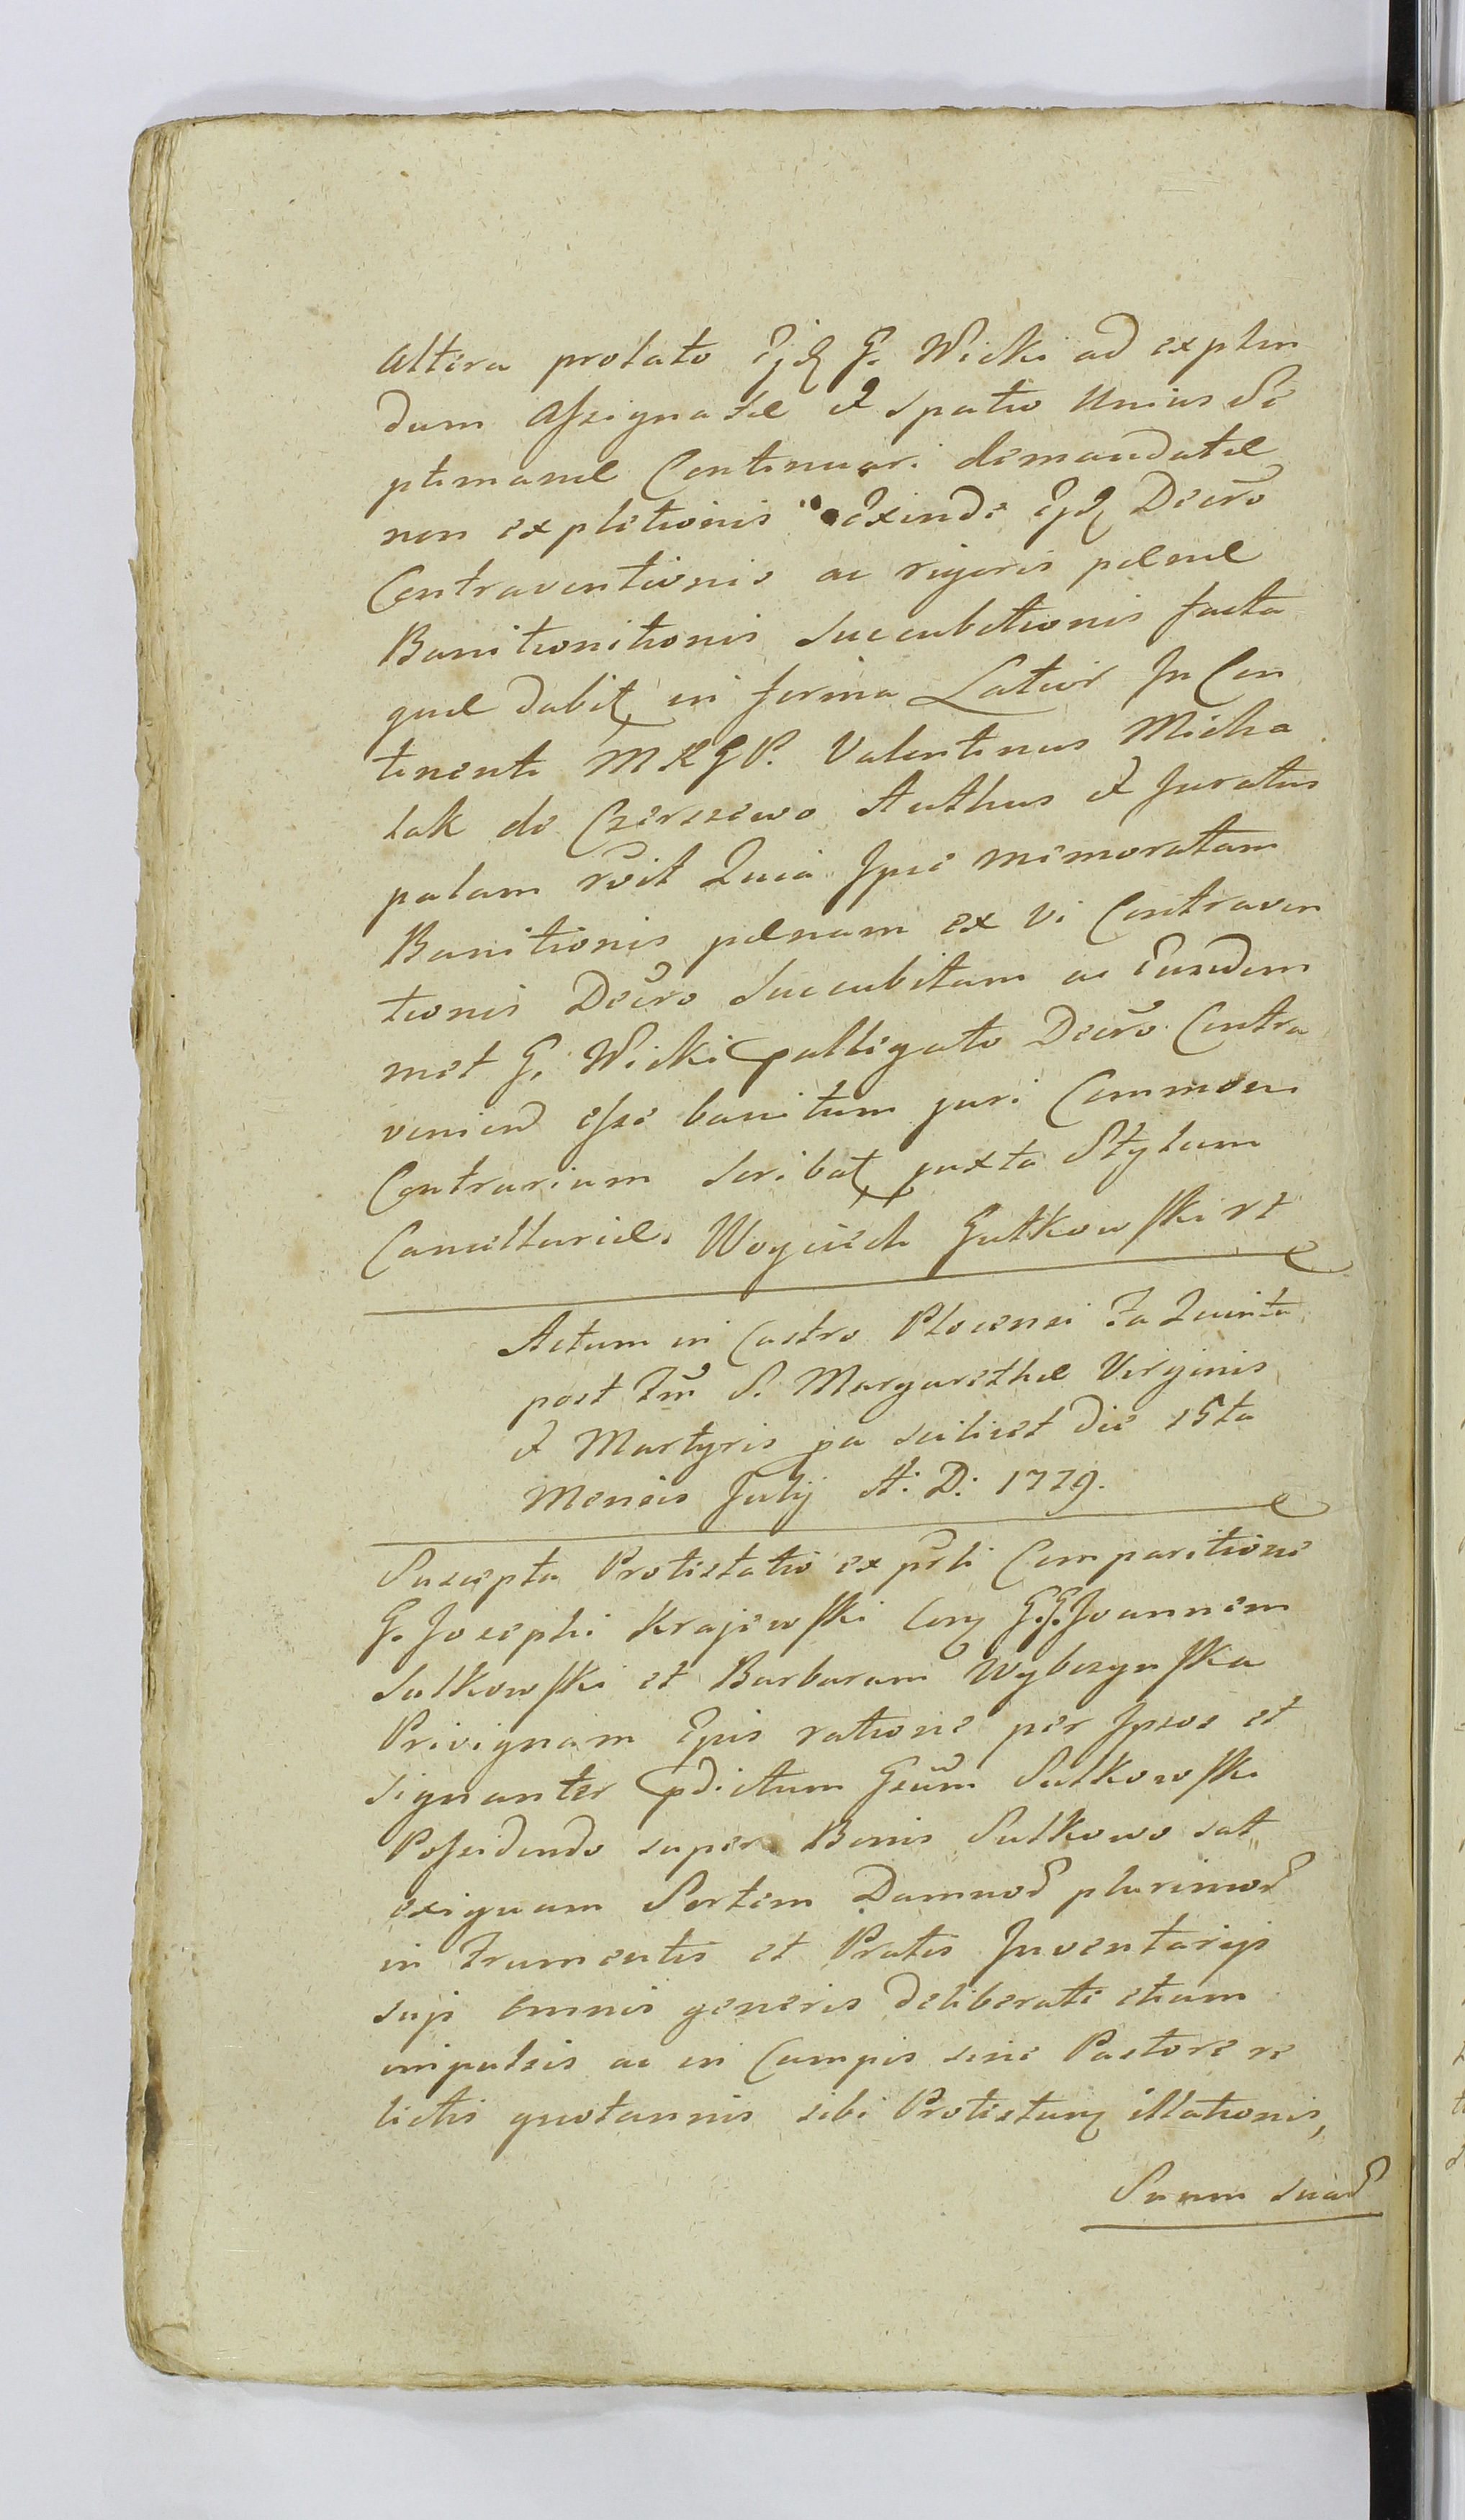 altera prolato Ejq G. Wicki ad explen
dum Assignatæ et spatio Unius Se
ptimanæ Continuari demandatæ
non expletionis exinde Ejq Decro
Contraventionis ac rigoris pœnæ
Banitionitionis succubitionis facta
quæ dabit in forma Latior In Con
tinenti MRGP. Valentinus Micha
lak de Czerszewo Authus et Juratus
palam rôit Quia Ipse memoratam
Banitionis pœnam ex vi Contraven
tionis Decro succubitam ac Eundem
met G. Wicki palligato Decro Contra
veniend esse banitum juri Communi
Contrarium scribat juxta Stylum
Cancellariæ. Woyciech Gutkowski rt
Actum in Castro Plocensi Fa Quinta
post Fm S. Margarethæ Virginis
et Martyris pa scilicet die 15ta
Mensis Julij A: D: 1779.
Suscepta Protestatio ex prti Comparitione
G. Josephi Krajewski Cony G.G. Joannem
Sulkowski et Barbaram Wybczynska
Privignam Ejus ratione per Ipsos et
signanter pdictum Gsum Sulkowski
Possidendo super Bonis Sulkowo sat
exiguam Sortem Damnod plurimod
in Frumentis et Pratis Inventarijs
suji omnis generis deliberate etiam
impulsis ac in Campis sine Pastore re
lictis quotannis sibi Protestanq illationis,
Suum suad